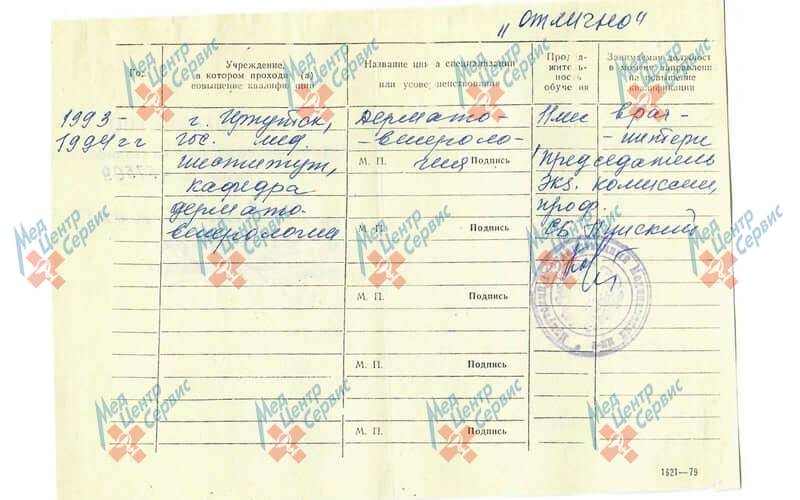 „Отлично“
Год
Учреждение,
в котором проходил(а)
повышение квалификации
Название цикла специализации
или усовершенствования
Продол-
жите-
ность
обучения
Занимаемая должность
в момент направления
на повышение
квалификации
1993-
1994гг
г. Иркутск,
гос. мед.
институт,
кафедра
дермато-
венерологии
Дермато-
-венероло-
гия
11мес
врач-
-интерн
Председатель
экз. комиссии,
проф.
М. П. Подпись
М. П. Подпись
М. П. Подпись
М. П. Подпись
М. П. Подпись
1621—79
Мед Центр Сервис